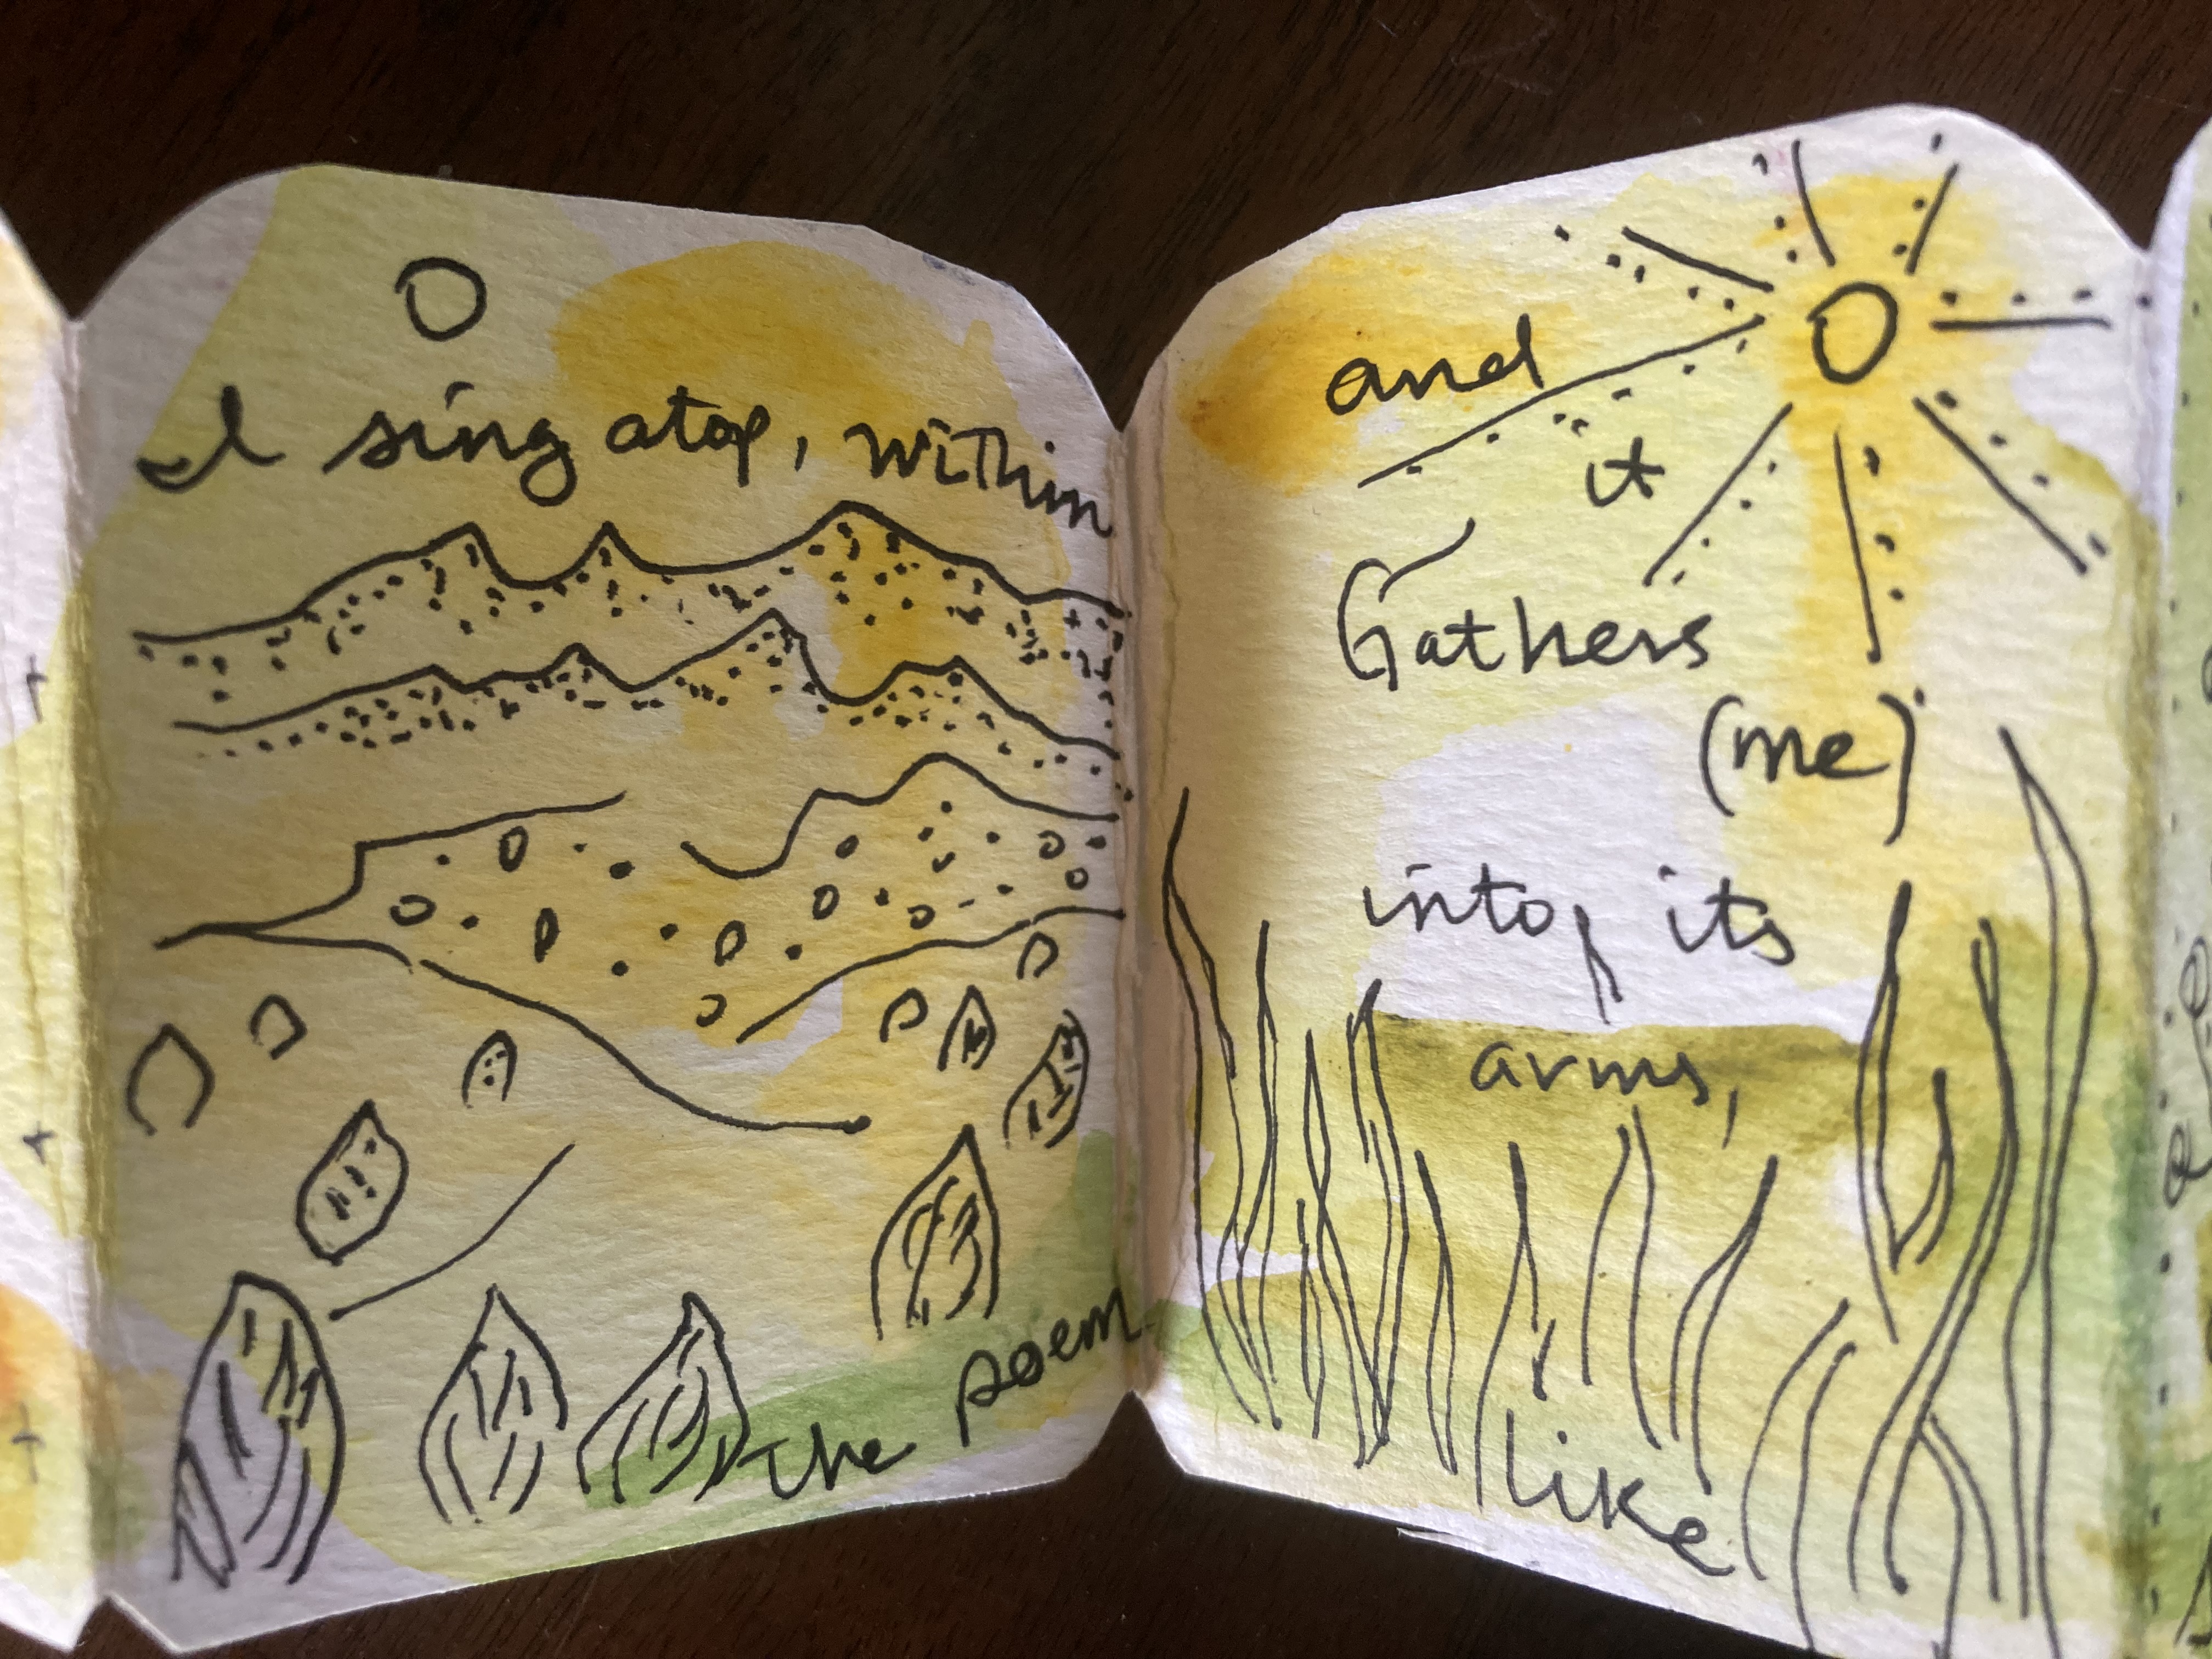 I sing atop, within
the poem
and
it
Gathers
(me)
into, its
arms,
like